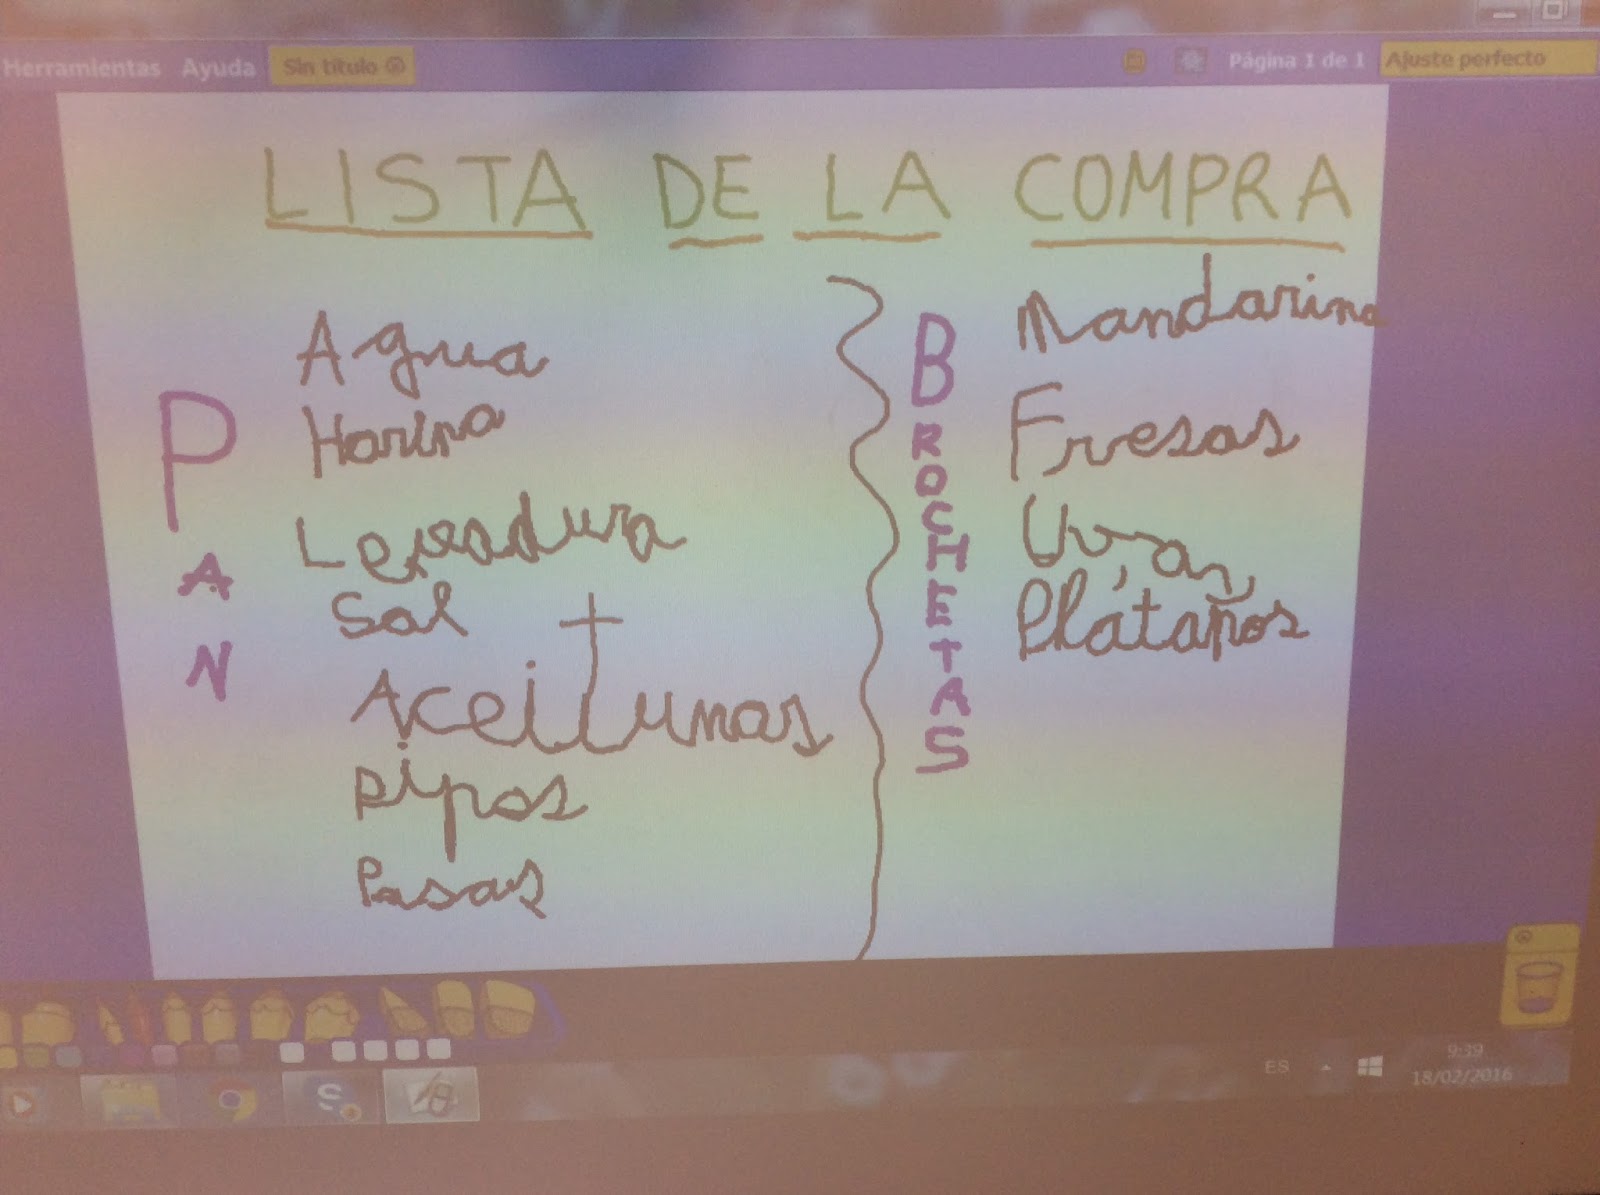 Herramientas Ayuda Sin título
Página 1 de 1 Ajuste perfecto
LISTA DE LA COMPRA
PAN
Agua
Harina
Levadura
Sal
Aceitunas
Pipas
Pasas
BROCHETAS
Mandarina
Fresas
Uvas
Plátaños
ES
9:39
18/02/2016